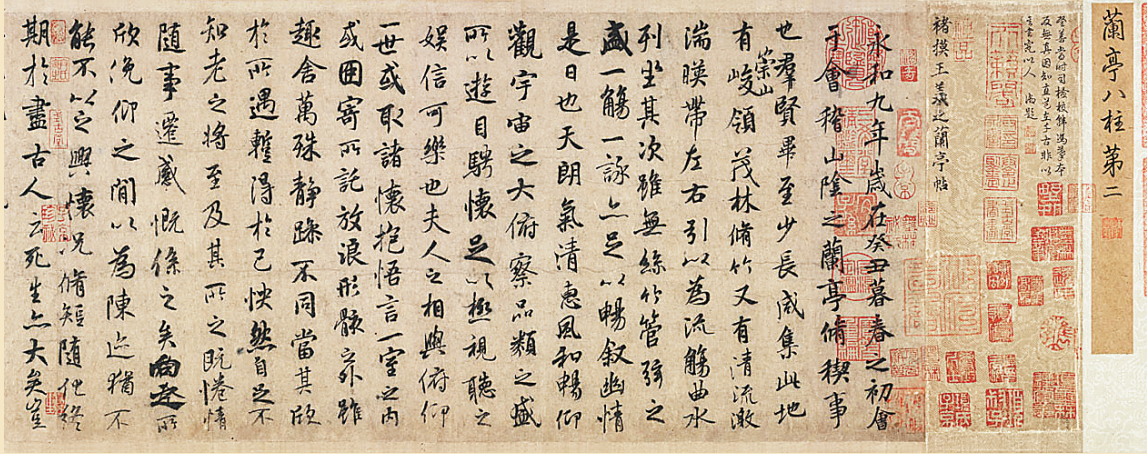 蘭亭八柱第二
褚摸王羲之蘭亭帖
永和九年歲在癸丑暮春之初會
于會稽山陰之蘭亭脩稧事
也羣賢畢至少長咸集此地
有崇山峻領茂林脩竹又有清流激
湍暎帶左右引以為流觴曲水
列坐其次雖無絲竹管弦之
盛一觴一詠亦足以暢叙幽情
是日也天朗氣清惠風和暢仰
觀宇宙之大俯察品類之盛
所以遊目騁懷足以極視聽之
娛信可樂也夫人之相與俯仰
一世或取諸懷抱悟言一室之內
或因寄所託放浪形骸之外雖
趣舍萬殊静躁不同當其欣
於所遇蹔得於己怏然自足不
知老之將至及其所之既惓情
隨事遷感慨係之矣向之所
欣俛仰之閒以為陳迹猶不
能不以之興懷況脩短隨化終
期於盡古人云死生亦大矣豈